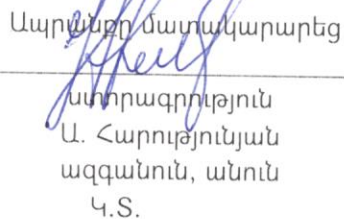 Ապրանքը մատակարարեց
ստորագրություն
Ա. Հարությունյան
ազգանուն, անուն
Կ.Տ.